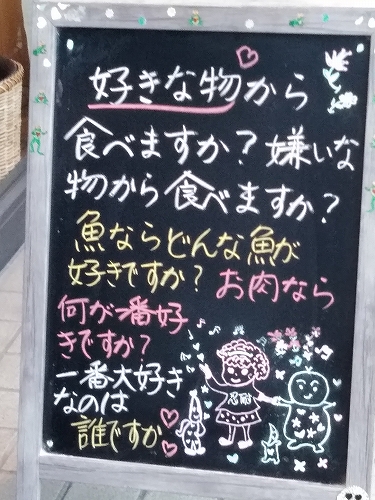 好きな物から
食べますか？嫌いな
物から食べますか？
魚ならどんな魚が
好きですか？お肉なら
何が一番好
きですか？
一番大好き
なのは
誰ですか
忍耐